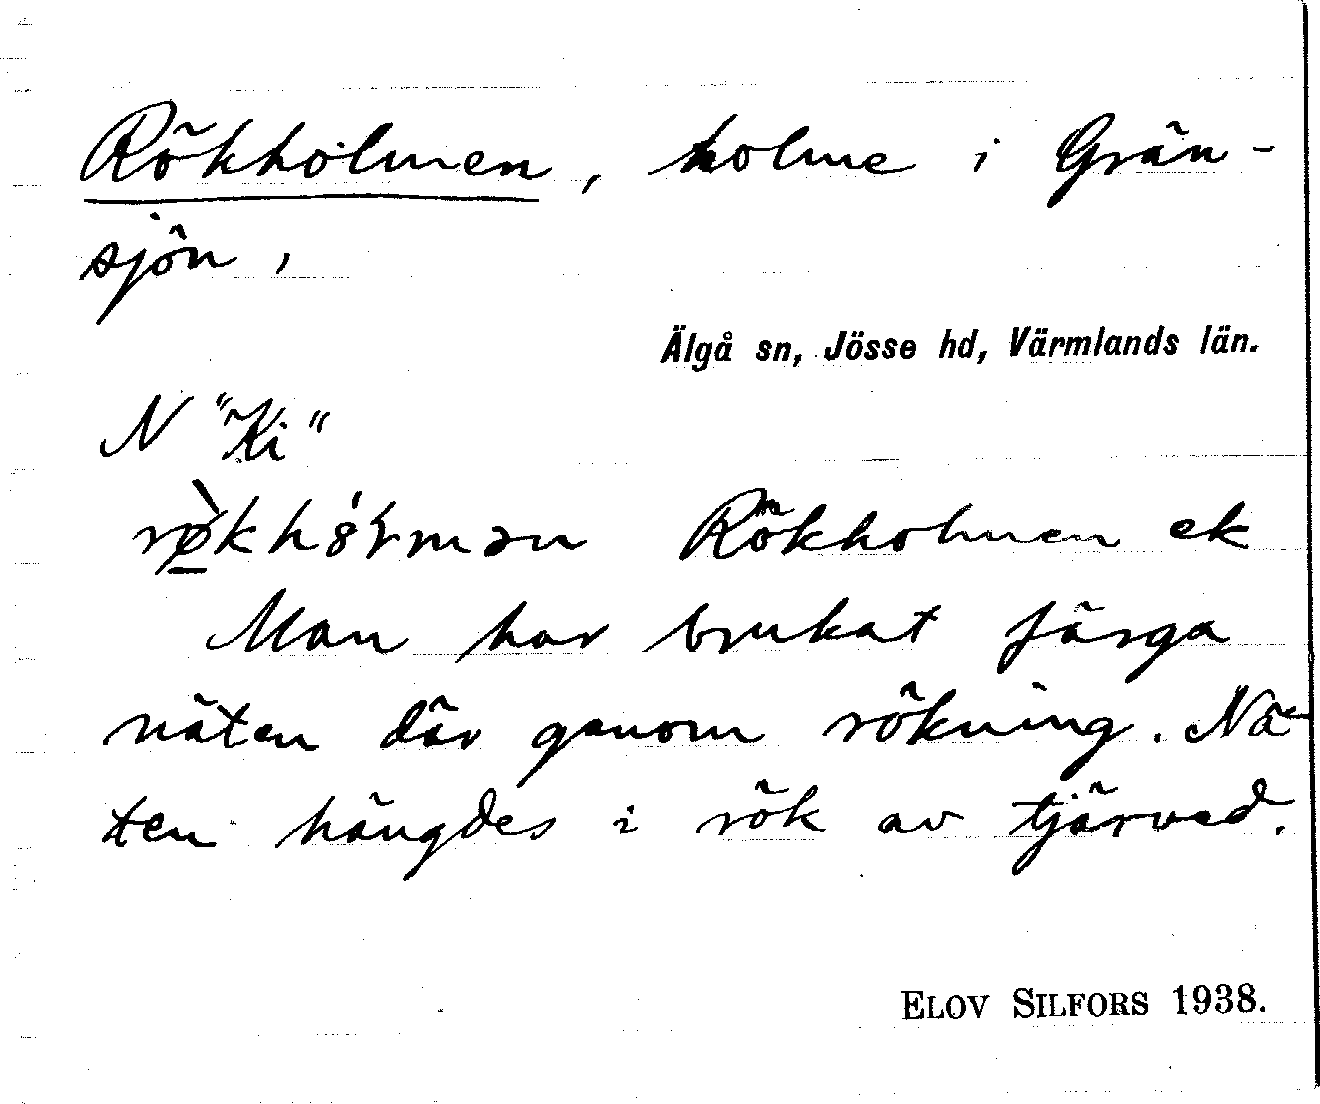 Rökholmen, holme i Grän-
sjön,
Älgå sn, Jösse hd, Värmlands län.
N "Ki"
Rökholmen ek
Man har brukat färga
näten där genom rökning. Nä-
ten hängdes i rök av tjärved.
ELOV SILFORS 1938.